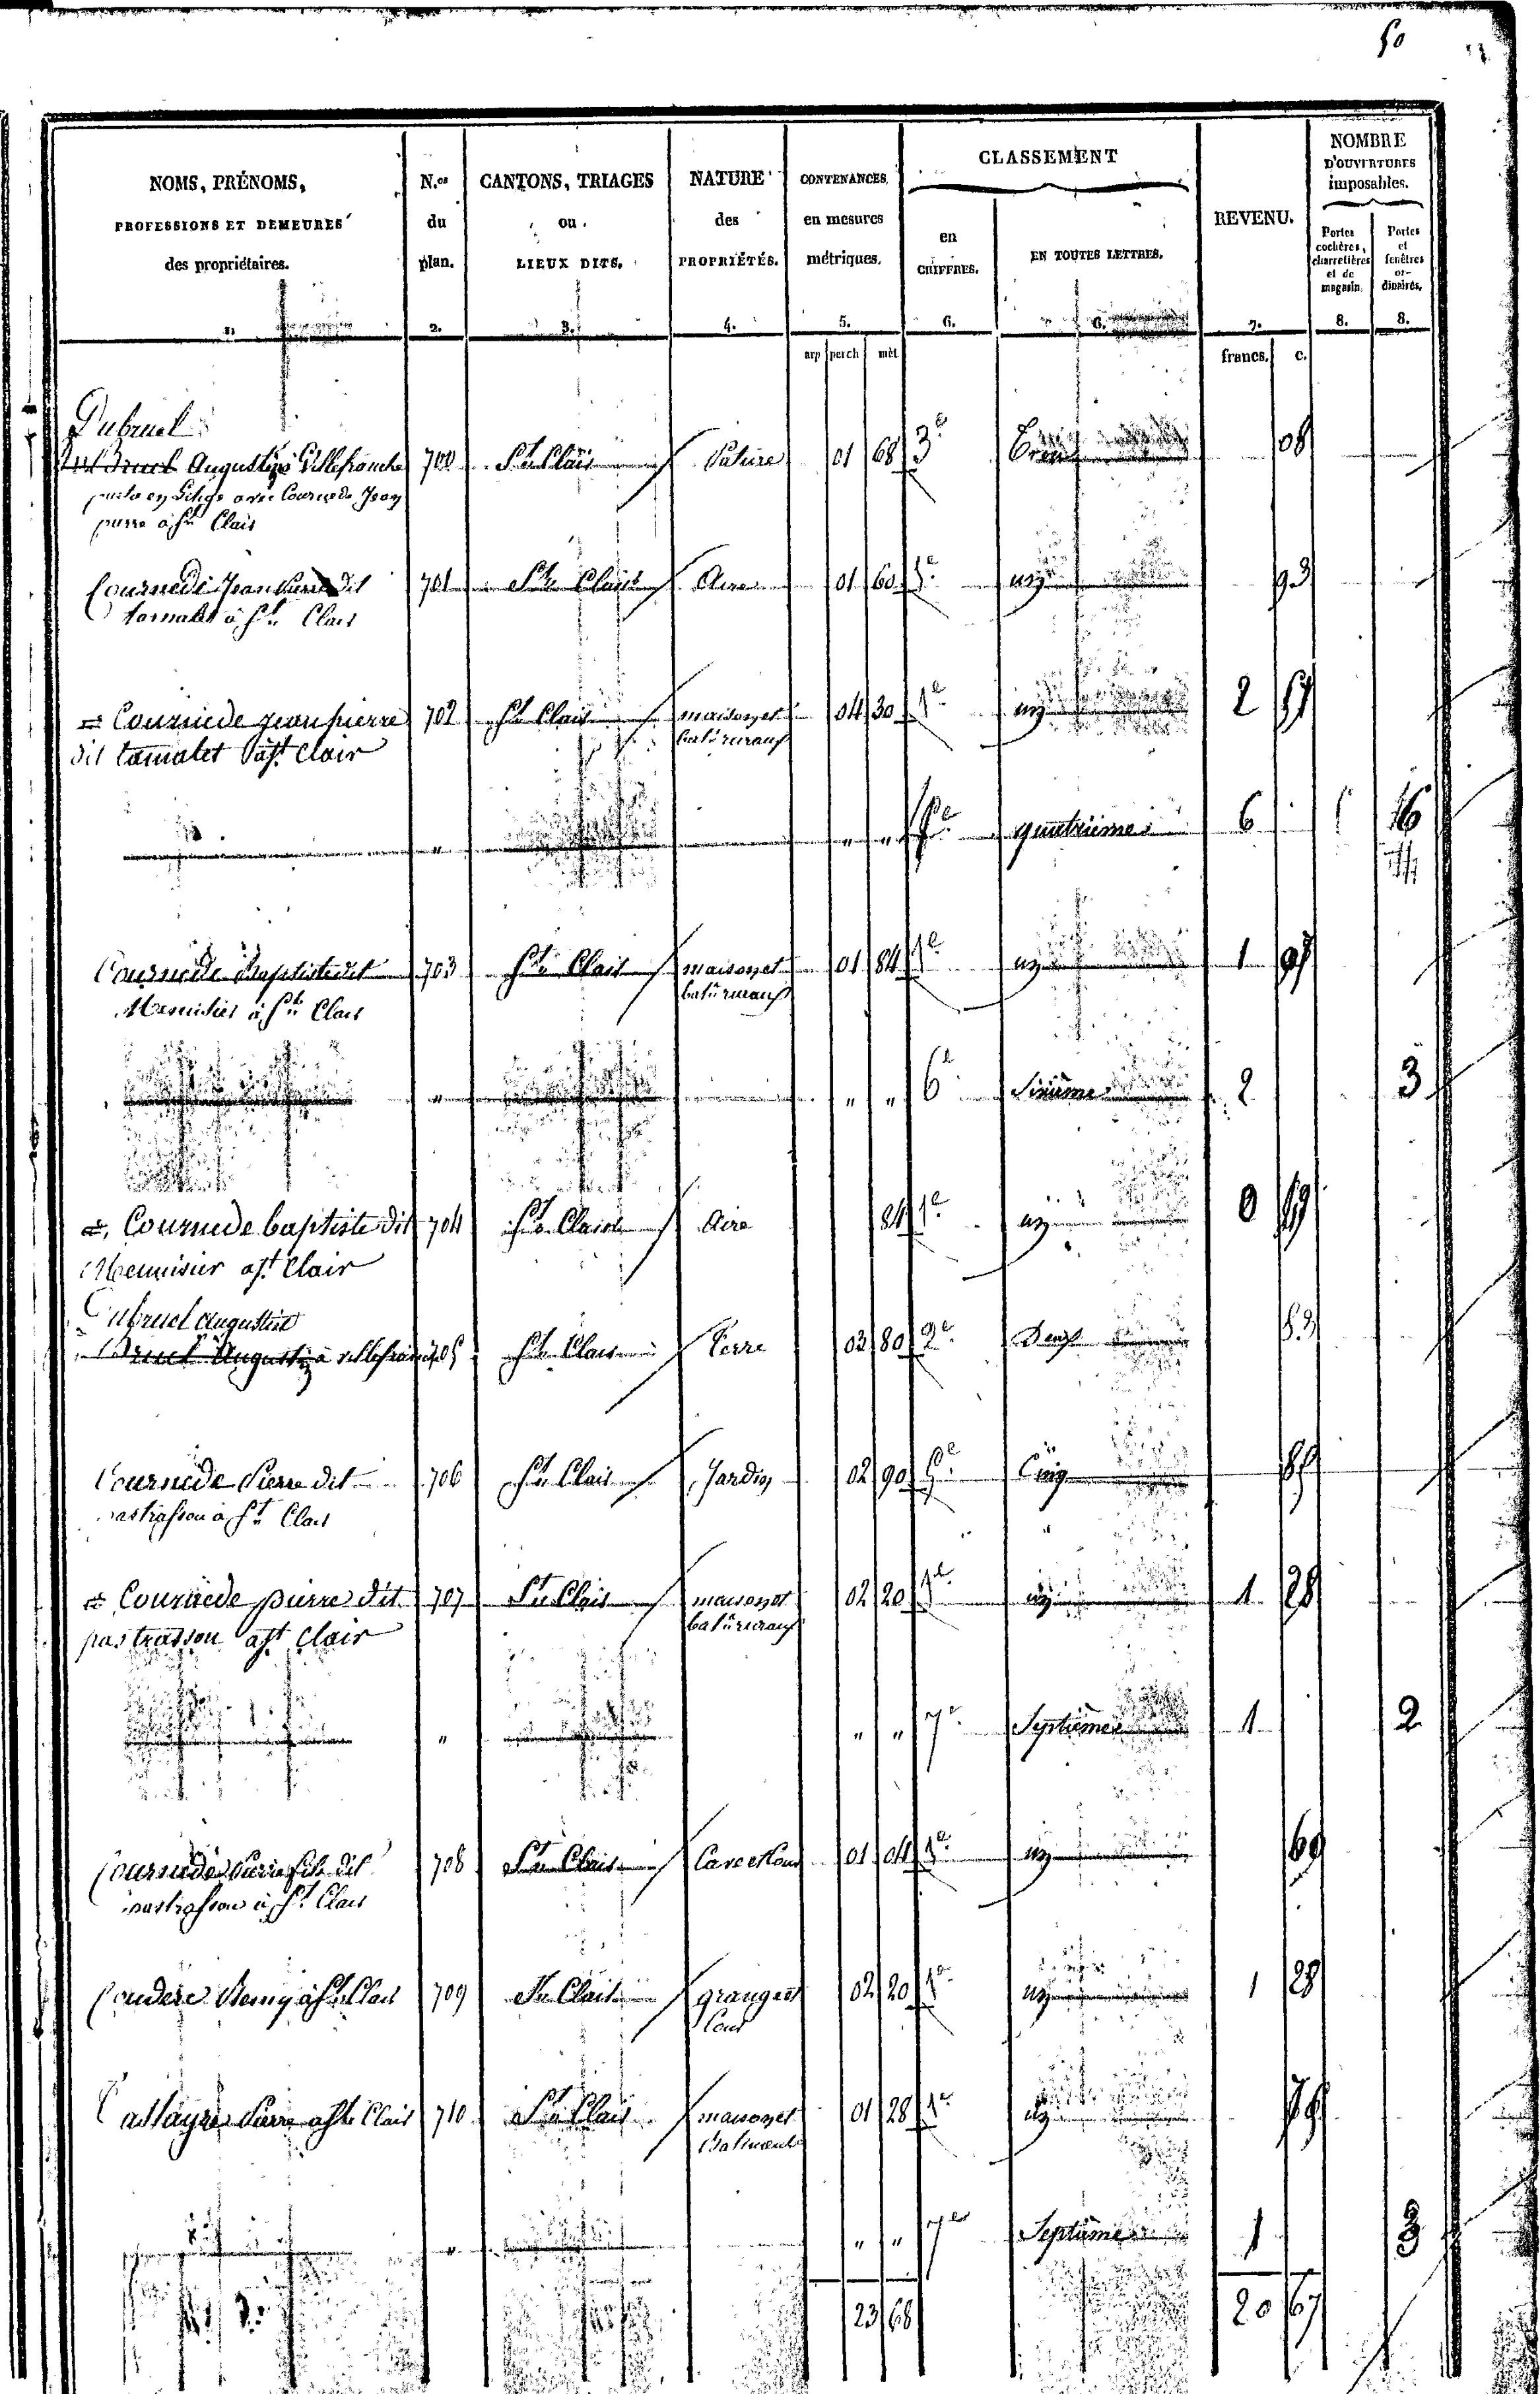 50
NOMS, PRÉNOMS, PROFESSIONS ET DEMEURES des propriétaires. 1.
N.os du plan. 2.
CANTONS, TRIAGES ou LIEUX DITS. 3.
NATURE des PROPRIÉTÉS. 4.
CONTENANCES en mesures métriques. 5.
CLASSEMENT
en CHIFFRES. 6.
EN TOUTES LETTRES. 6.
REVENU. 7.
NOMBRE D'OUVERTURES imposables.
Portes cochères, charretières et de magasin. 8.
Portes et fenêtres ordinaires. 8.
arp perch mèt francs. c.
Dubruel
Augustin à Villefranche 700 Ste Clair Pature 01 68 3e 08
en litige avec Cournede Jean
pierre à Ste Clair
Cournede Jean Pierre dit 701 Ste Clair Aire 01 60 1e un 93
tamalet à Ste Clair
= Cournede jean pierre 702 Ste Clair maison et 04 30 1e un 2 51
dit tamalet à St Clair bat ruraux
" " " quatrième 6 16
Cournede Baptiste dit 703 Ste Clair maison et 01 84 1e un 1 07
Menuisier à Ste Clair bat ruraux
" " " 6e Sixième 2 3
= Cournede baptiste dit 704 Ste Clair Aire 84 1e un 0 49
Menuisier a St Clair
Dubruel augustin
Bruel Augustin à villefranche 705 Ste Clair Terre 03 80 2e Deux 83
Cournede Pierre dit 706 Ste Clair Jardin 02 90 5e Cinq 85
pastrasson à Ste Clair
= Cournede pierre dit 707 Ste Clair maison et 02 20 1e un 1 28
pastrasson a St Clair bat ruraux
" " " 7e Septième 1 2
Cournede Pierre fils dit 708 Ste Clair Cave et Cour 01 04 1e un 60
pastrasson à St Clair
Couderc Remy à Ste Clair 709 Ste Clair grange et 02 20 1e un 1 28
Cour
Pierre a Ste Clair 710 Ste Clair maison et 01 28 1e un 75
Batiments
" " " 7e Septième 1 3
23 68 20 67